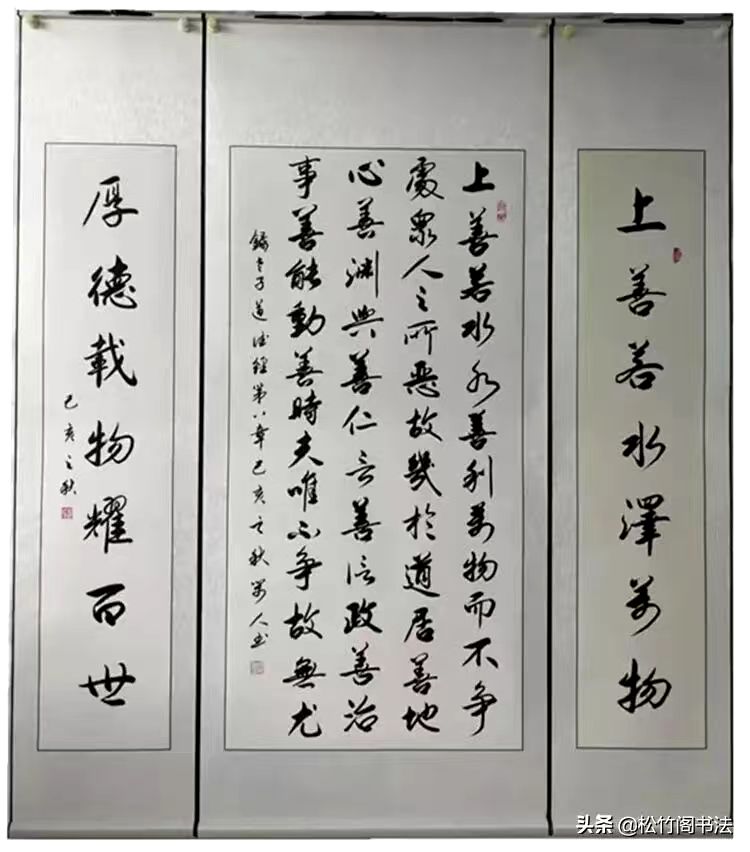 上善若水澤萬物
上善若水水善利萬物而不争
處衆人之所惡故幾於道居善地
心善淵與善仁言善信政善治
事善能動善時夫唯不争故無尤
錄老子道德經第八章己亥之秋萬人书
厚德載物耀百世
己亥之秋
头条 @松竹阁书法